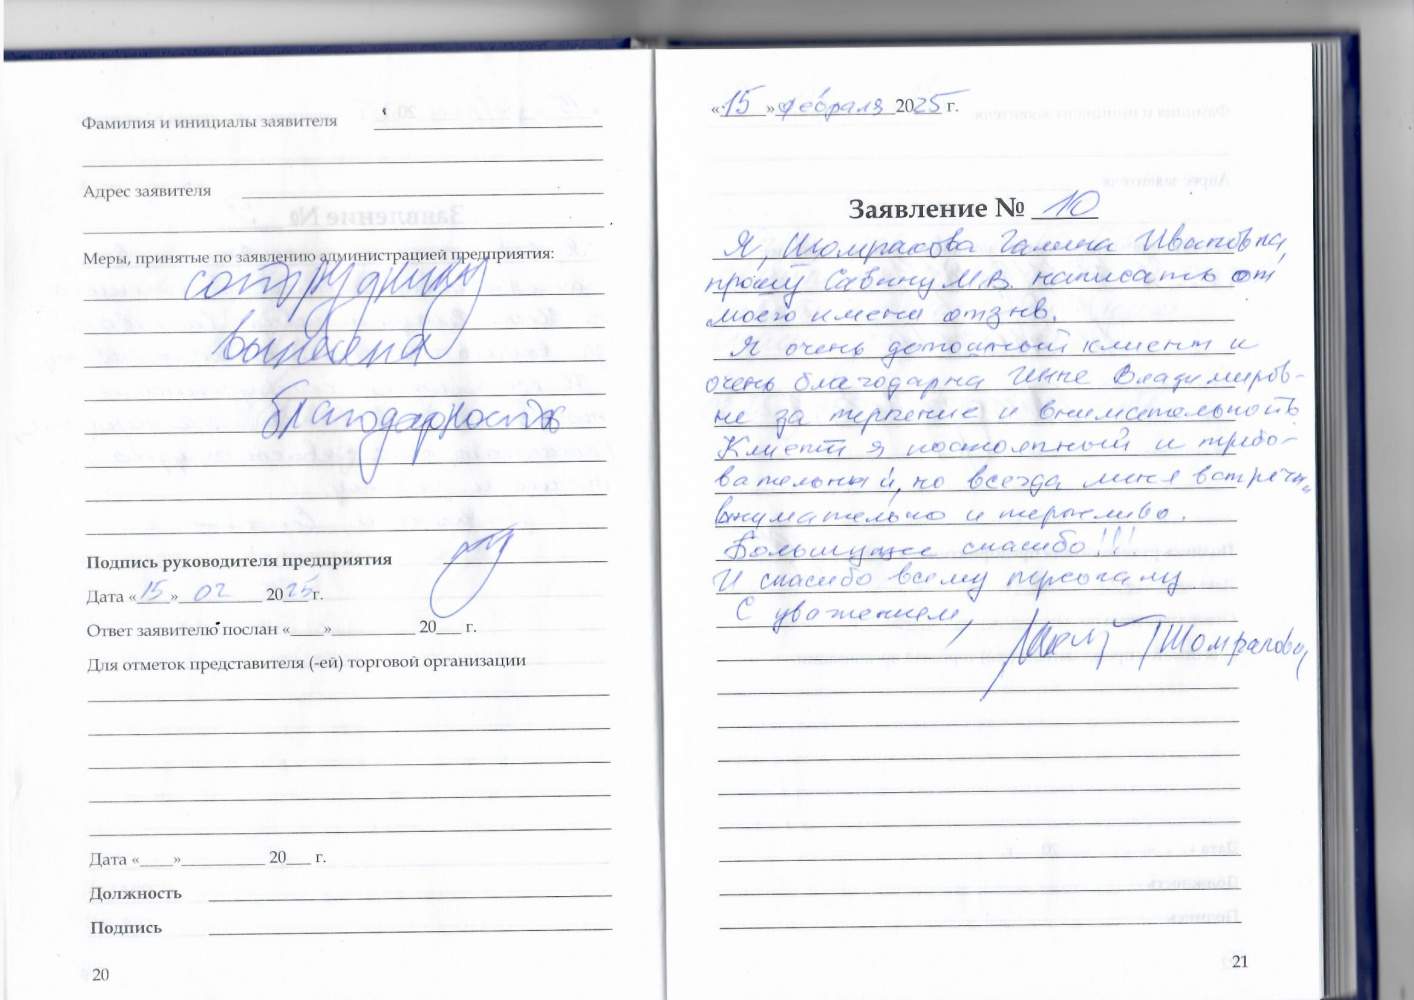 Фамилия и инициалы заявителя
Адрес заявителя
Меры, принятые по заявлению администрацией предприятия:
сотруднику
вынесена
благодарность
Подпись руководителя предприятия
Дата «15» 02 2025 г.
Ответ заявителю послан «____»__________ 20___ г.
Для отметок представителя (-ей) торговой организации
Дата «____»__________ 20___ г.
Должность
Подпись
20
«15» февраля 2025 г.
Заявление № 10
Я, Шомракова Галина Ивановна,
прошу Савину И.В. написать от
моего имени отзыв.
Я очень дотошный клиент и
очень благодарна Инне Владимиров-
не за терпение и внимательность
Клиент я постоянный и требо-
вательный, но всегда меня встречи
внимательно и терпеливо.
Большущее спасибо!!!
И спасибо всему персоналу
С уважением,
Шомракова
21